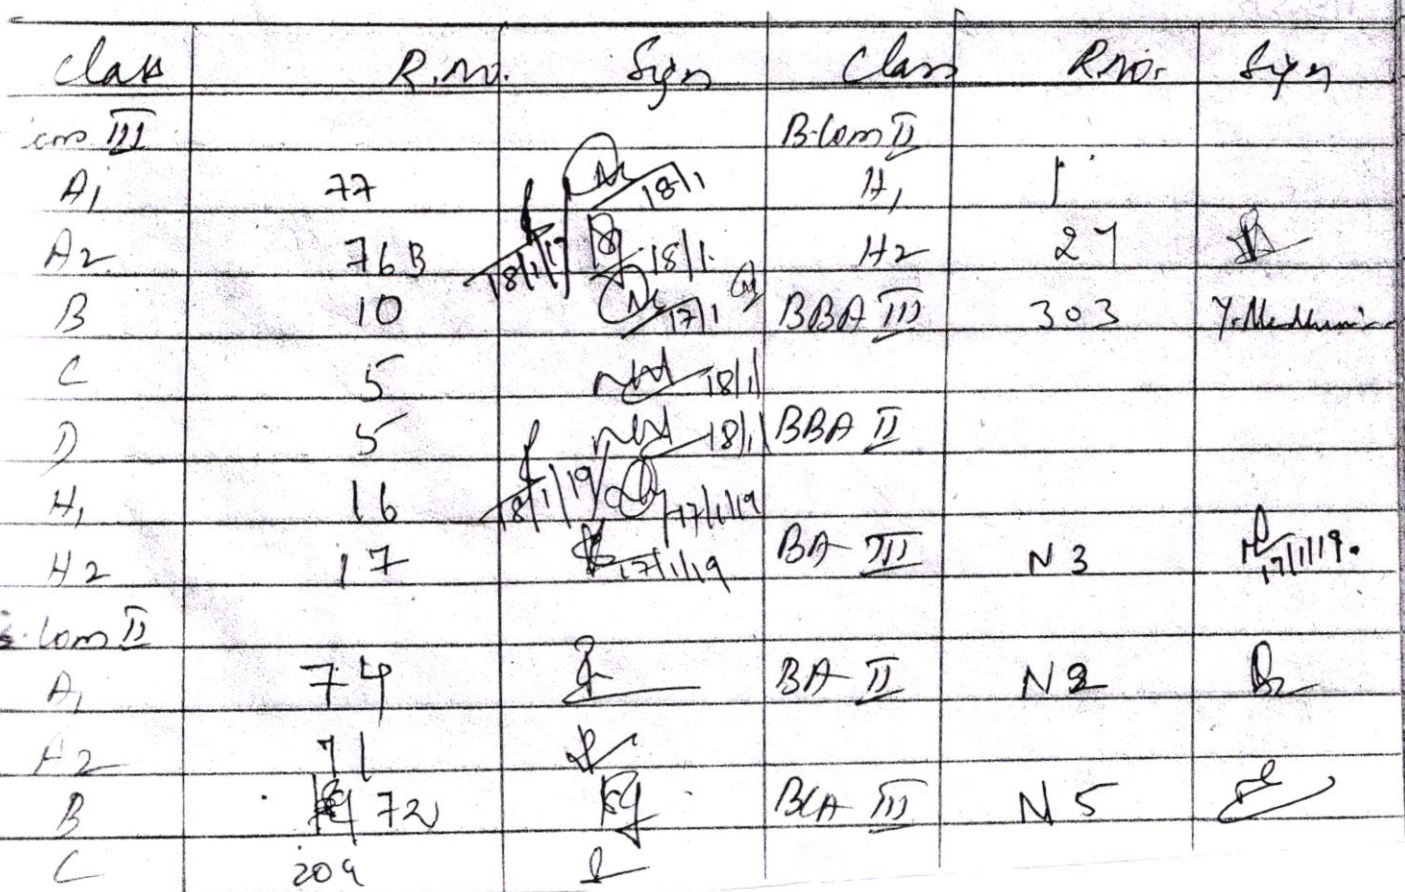 Class R.No. Sign Class R.No. Sign
com III B.Com II
A1 77 18/1 H1 1
A2 76B 18/1/19 18/1 H2 27
B 10 17/1 BBA III 303
C 5 18/1
D 5 18/1 BBA II
H1 16 18/1/19 17/1/19
H2 17 17/1/19 BA III N3 17/1/19.
.Com II
A1 74 BA II N2
A2 71
B 72 BCA III N5
C 209